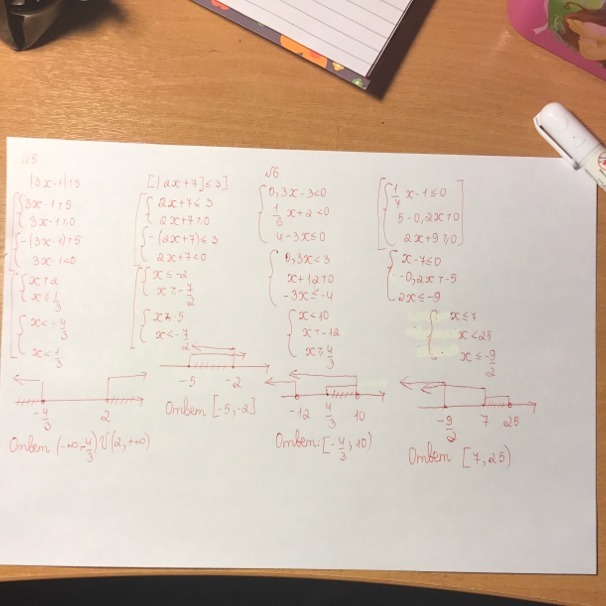 №5
|3x-1|>5
3x-1>5
3x-1≥0
-(3x-1)>5
3x-1<0
x>2
x≥1/3
x<-4/3
x<1/3
-4/3 2
Ответ (-∞,-4/3)U(2,+∞)
[|2x+7|≤3]
2x+7≤3
2x+7≥0
-(2x+7)≤3
2x+7<0
x≤-2
x≥-7/2
x<-7/2
-5 -2
Ответ [-5,-2]
№6
0,3x-3<0
4-3x≤0
0,3x<3
x+12>0
-3x≤-4
x<10
x>-12
x≥4/3
-12 4/3 10
Ответ: [-4/3;10)
1/7 x-1≤0
5-0,2x>0
2x+9≥0
x-7≤0
-0,2x>-5
2x≤-9
x≤7
x<25
x≤-9/2
-9/2 7 25
Ответ: [7,25)